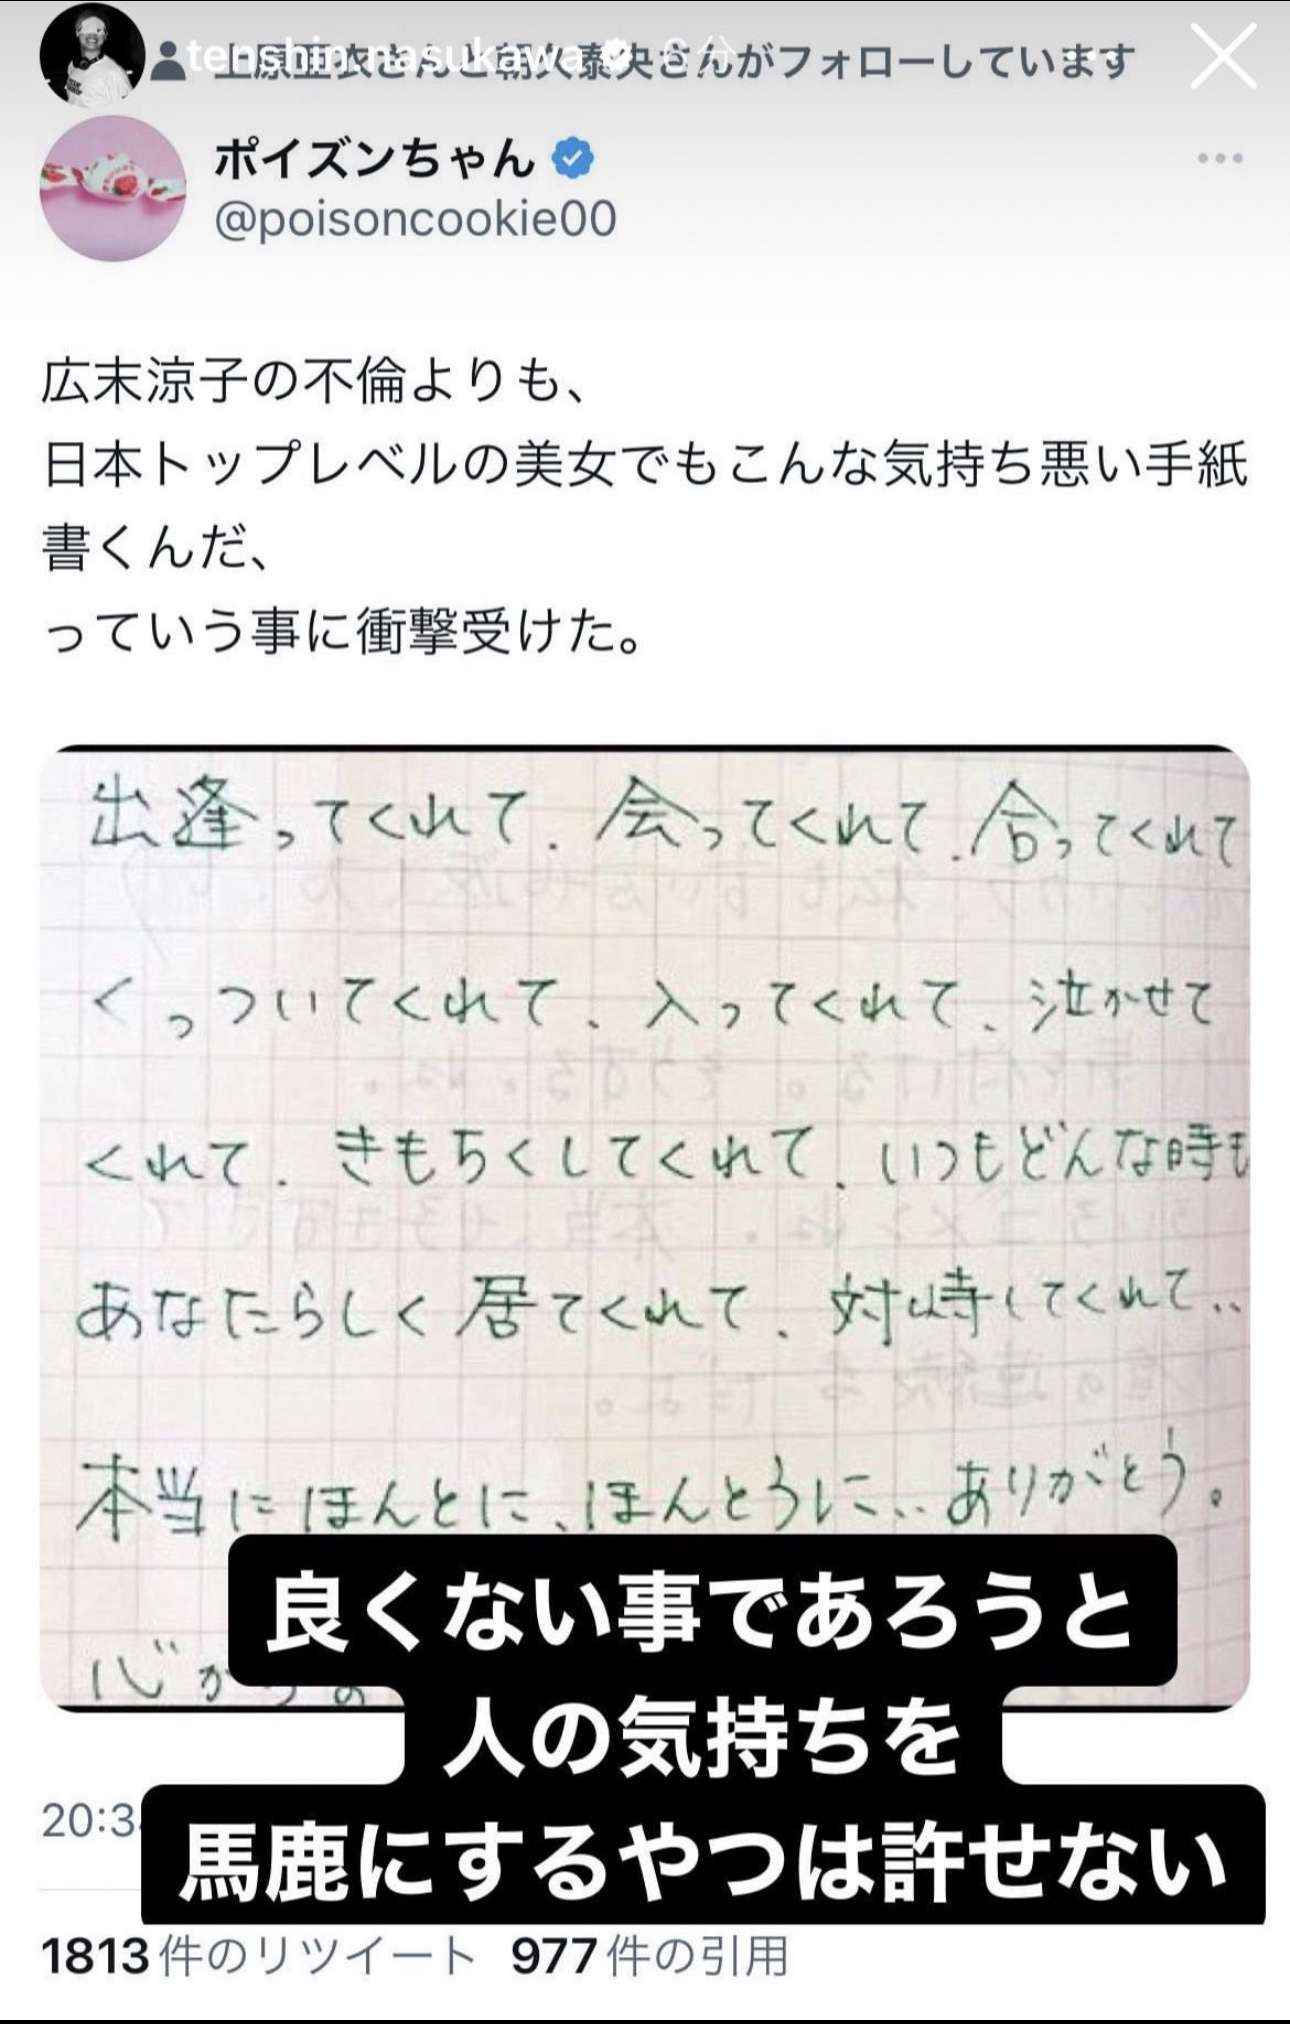 tenshin.nasukawa 6分
上原亜衣さんと朝久泰央さんがフォローしています
ポイズンちゃん
@poisoncookie00
広末涼子の不倫よりも、
日本トップレベルの美女でもこんな気持ち悪い手紙
書くんだ、
っていう事に衝撃受けた。
出逢ってくれて、会ってくれて、合ってくれて
くっついてくれて、入ってくれて、泣かせて
くれて、きもちくしてくれて、いつもどんな時も
あなたらしく居てくれて、対峙してくれて..
本当にほんとに、ほんとうに...ありがとう。
心から
良くない事であろうと
人の気持ちを
馬鹿にするやつは許せない
20:3
1813件のリツイート 977件の引用